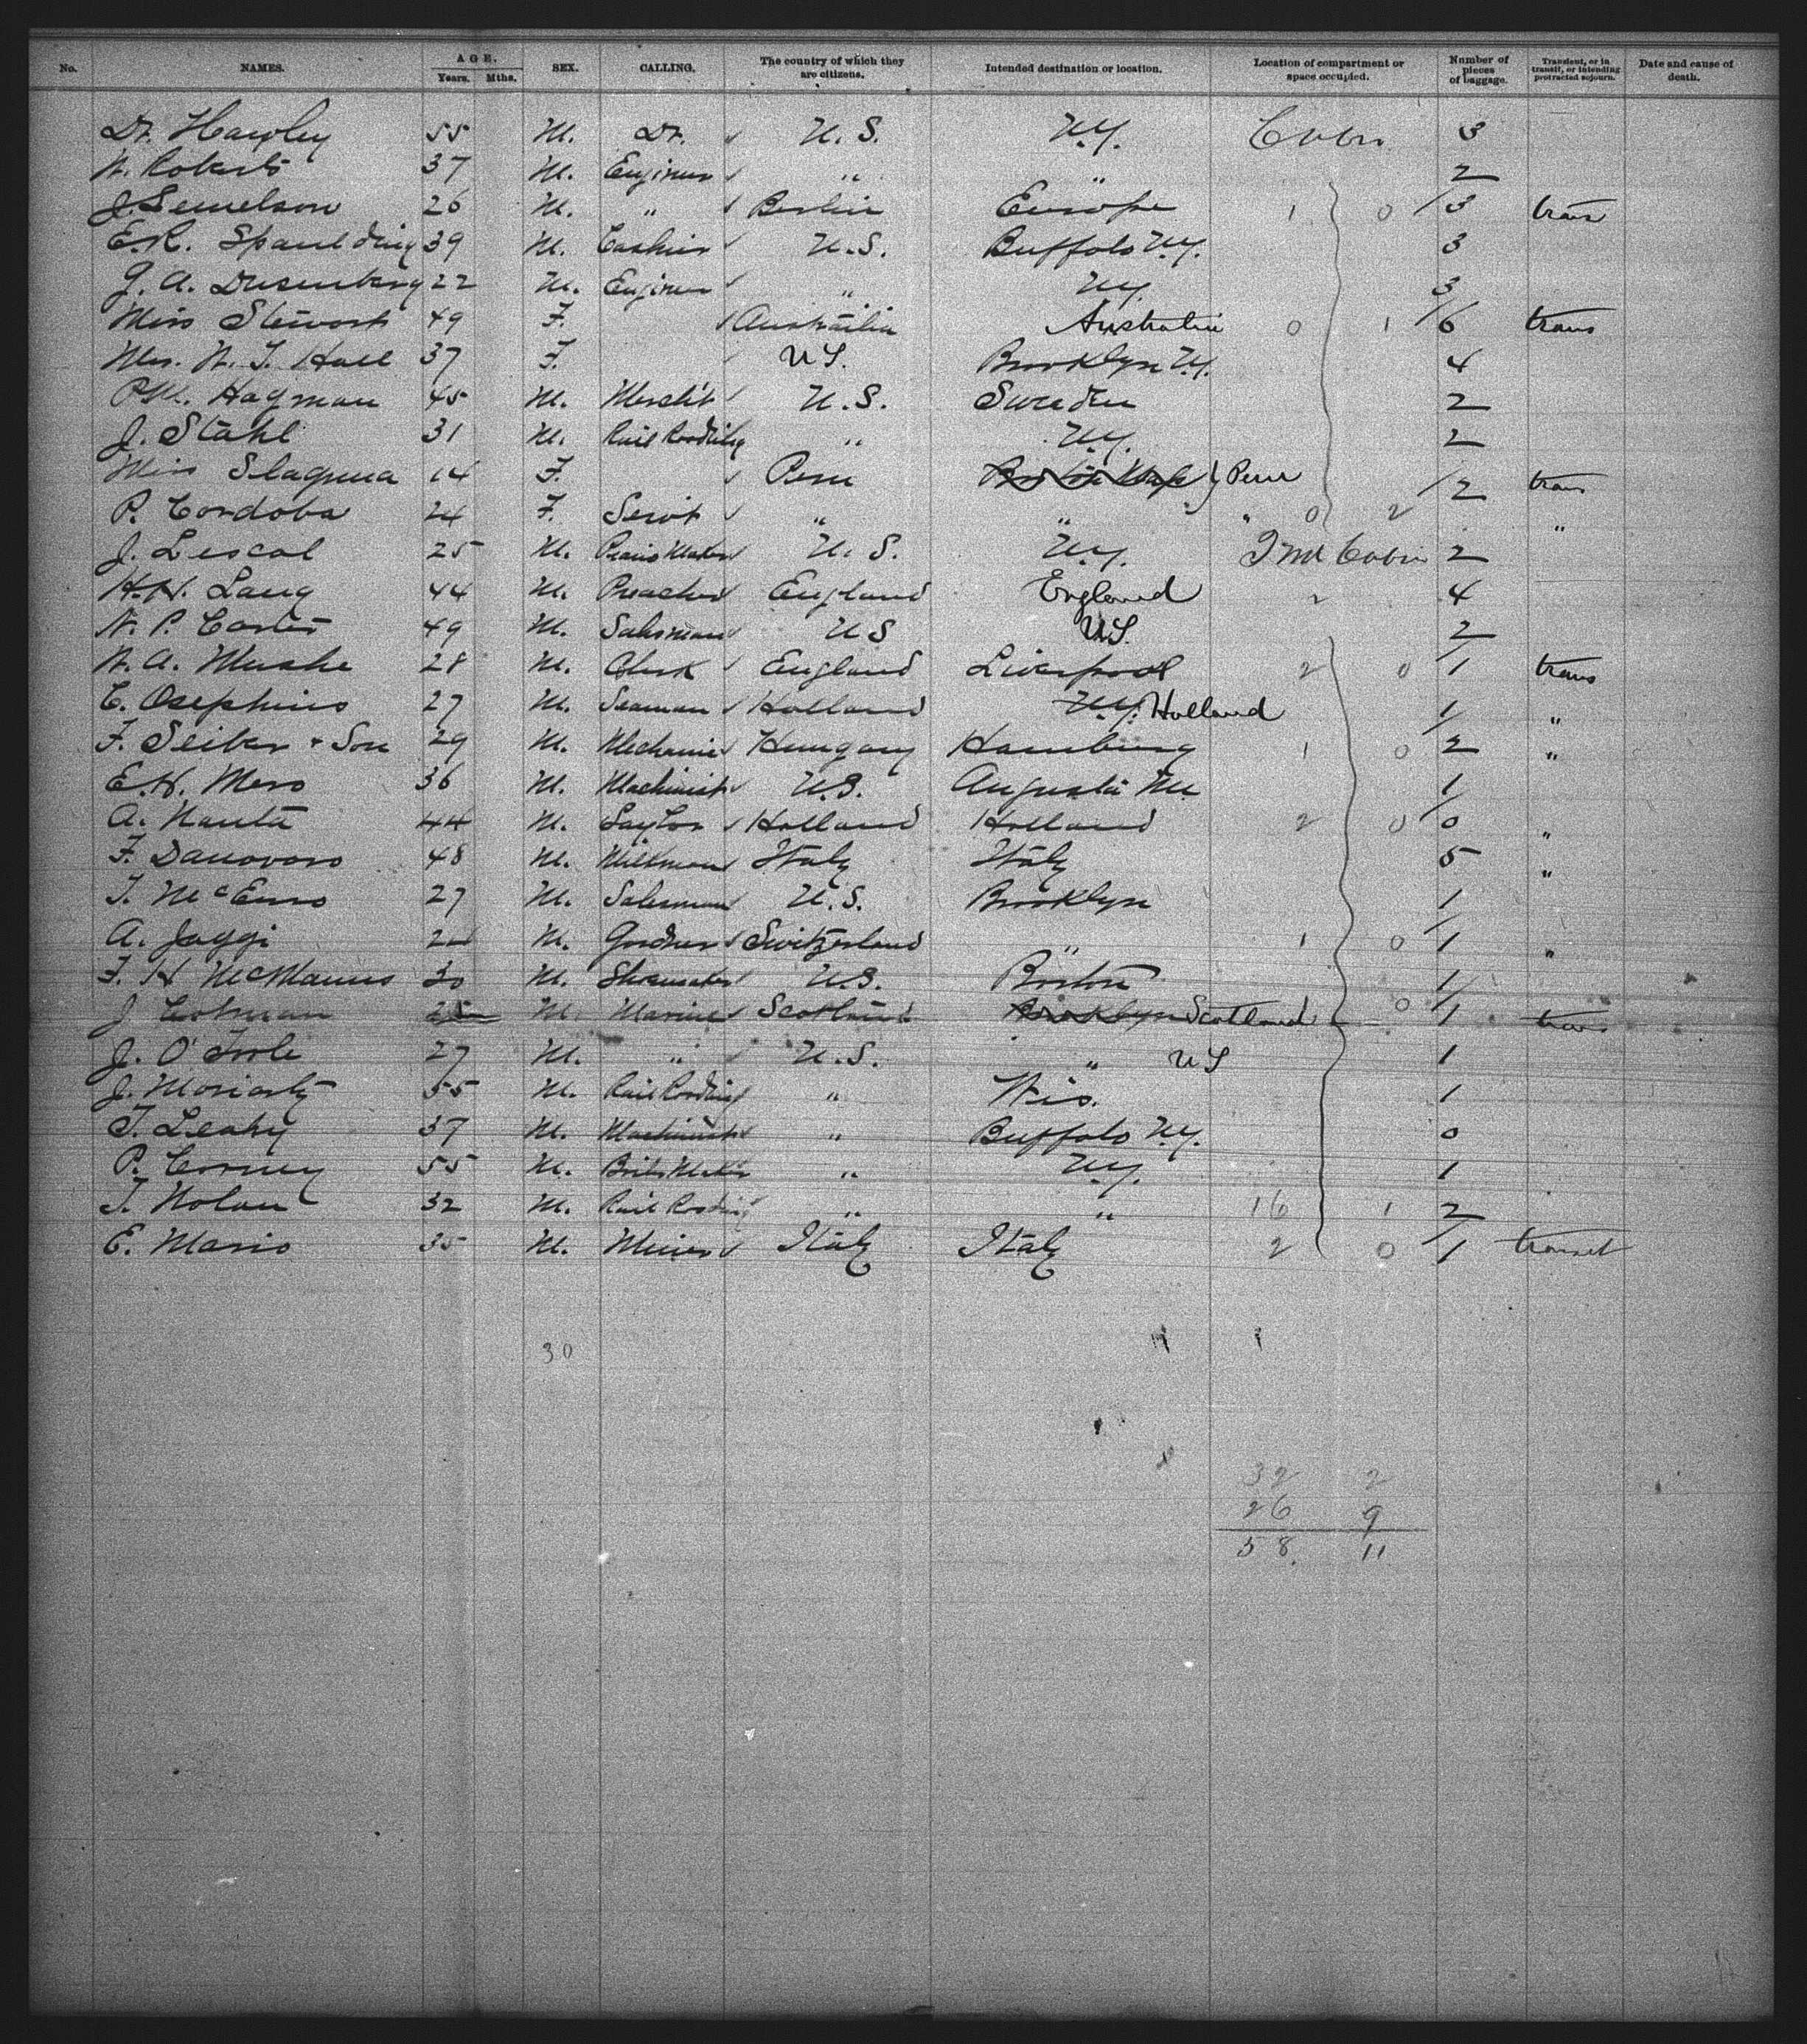 No. NAMES. AGE. Years. Mths. SEX. CALLING. The country of which they are citizens. Intended destination or location. Location of compartment or space occupied. Number of pieces of baggage. Transient, or in transit, or intending protracted sojourn. Date and cause of death.
Dr. Hawley 55 M. Dr. U.S. N.Y. Cabin 3
W. Roberts 37 M. Engineer " " 2
J. Semelson 26 M. " Berlin Europe 1 0 3 trans
E.R. Spaulding 39 M. Cashier U.S. Buffalo N.Y. 3
J. A. Dusenberg 22 M. Engineer " N.Y. 3
Miss Stewart 49 F. Australia Australia 0 1 6 trans
Mrs. W. T. Hall 37 F. US. Brooklyn N.Y. 4
P.M. Hagman 45 M. Merch't U.S. Sweden 2
J. Stahl 31 M. Rail Roading " N.Y. 2
Miss Slaguna 14 F. Peru Peru 2 trans
P. Cordoba 24 F. Servt " " " 0 2 "
J. Lescal 25 M. Piano Maker U.S. N.Y. 2nd Cabin 2
H.H. Lang 44 M. Preacher England England 2 4
W. P. Carter 49 M. Salesman US U.S. 2
W. A. Mushe 28 M. Clerk England Liverpool 2 0 1 trans
C. Osephius 27 M. Seaman Holland N.Y. Holland 1 "
F. Seiker + Son 29 M. Mechanic Hungary Hamburg 1 0 2 "
E.H. Mero 36 M. Machinist U.S. Augusta Me 1
A. Nauta 44 M. Saylor Holland Holland 2 0 0 "
F. Danovaro 48 M. Milkman Italy Italy 5 "
T. McEnro 27 M. Salesman U.S. Brooklyn 1
A. Jaggi M. Gardner Switzerland " 1 0 1 "
F. H McManus 30 M. Shoemaker U.S. Boston 1
J 25 M. Marine Scotland Brooklyn Scotland 0 1 trans
J. O'Toole 27 M. " U.S. " US 1
J. Moriarty 55 M. Rail Roading " Wis. 1
T. Leahy 37 M. Machinist " Buffalo N.Y. 0
P. Corney 55 M. Boiler Maker " N.Y. 1
T. Nolan 32 M. Rail Roading " " 16 1 2
E. Mario 35 M. Miner Italy Italy 2 0 1 transit
30
32 2
26 9
58. 11